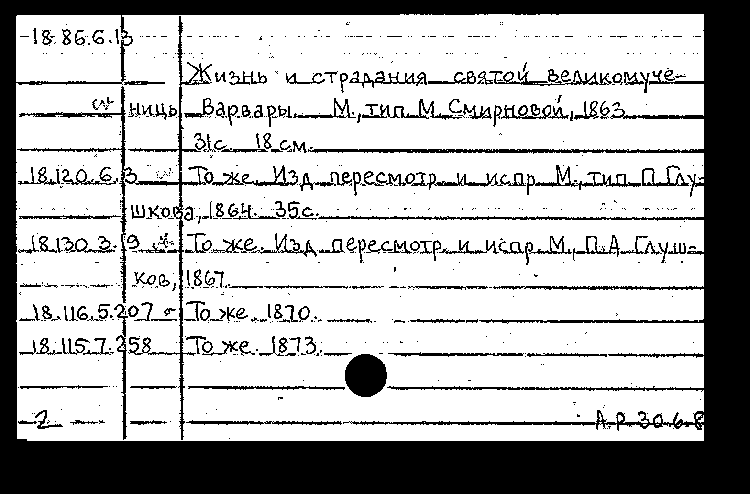 18.86.6.13
Жизнь и страдания святой великомуче-
ницы Варвары. М., тип. М. Смирновой, 1863.
31с. 18 см.
18.120.6.3 То же. Изд. пересмотр. и испр. М., тип. П. Глу-
шкова, 1864. 35с.
18.130.3.19 То же. Изд. пересмотр. и испр. М., П.А. Глуш-
ков, 1867.
18.116.5.207 То же. 1870.
18.115.7.258 То же. 1873.
2 А.Р. 30.6.8